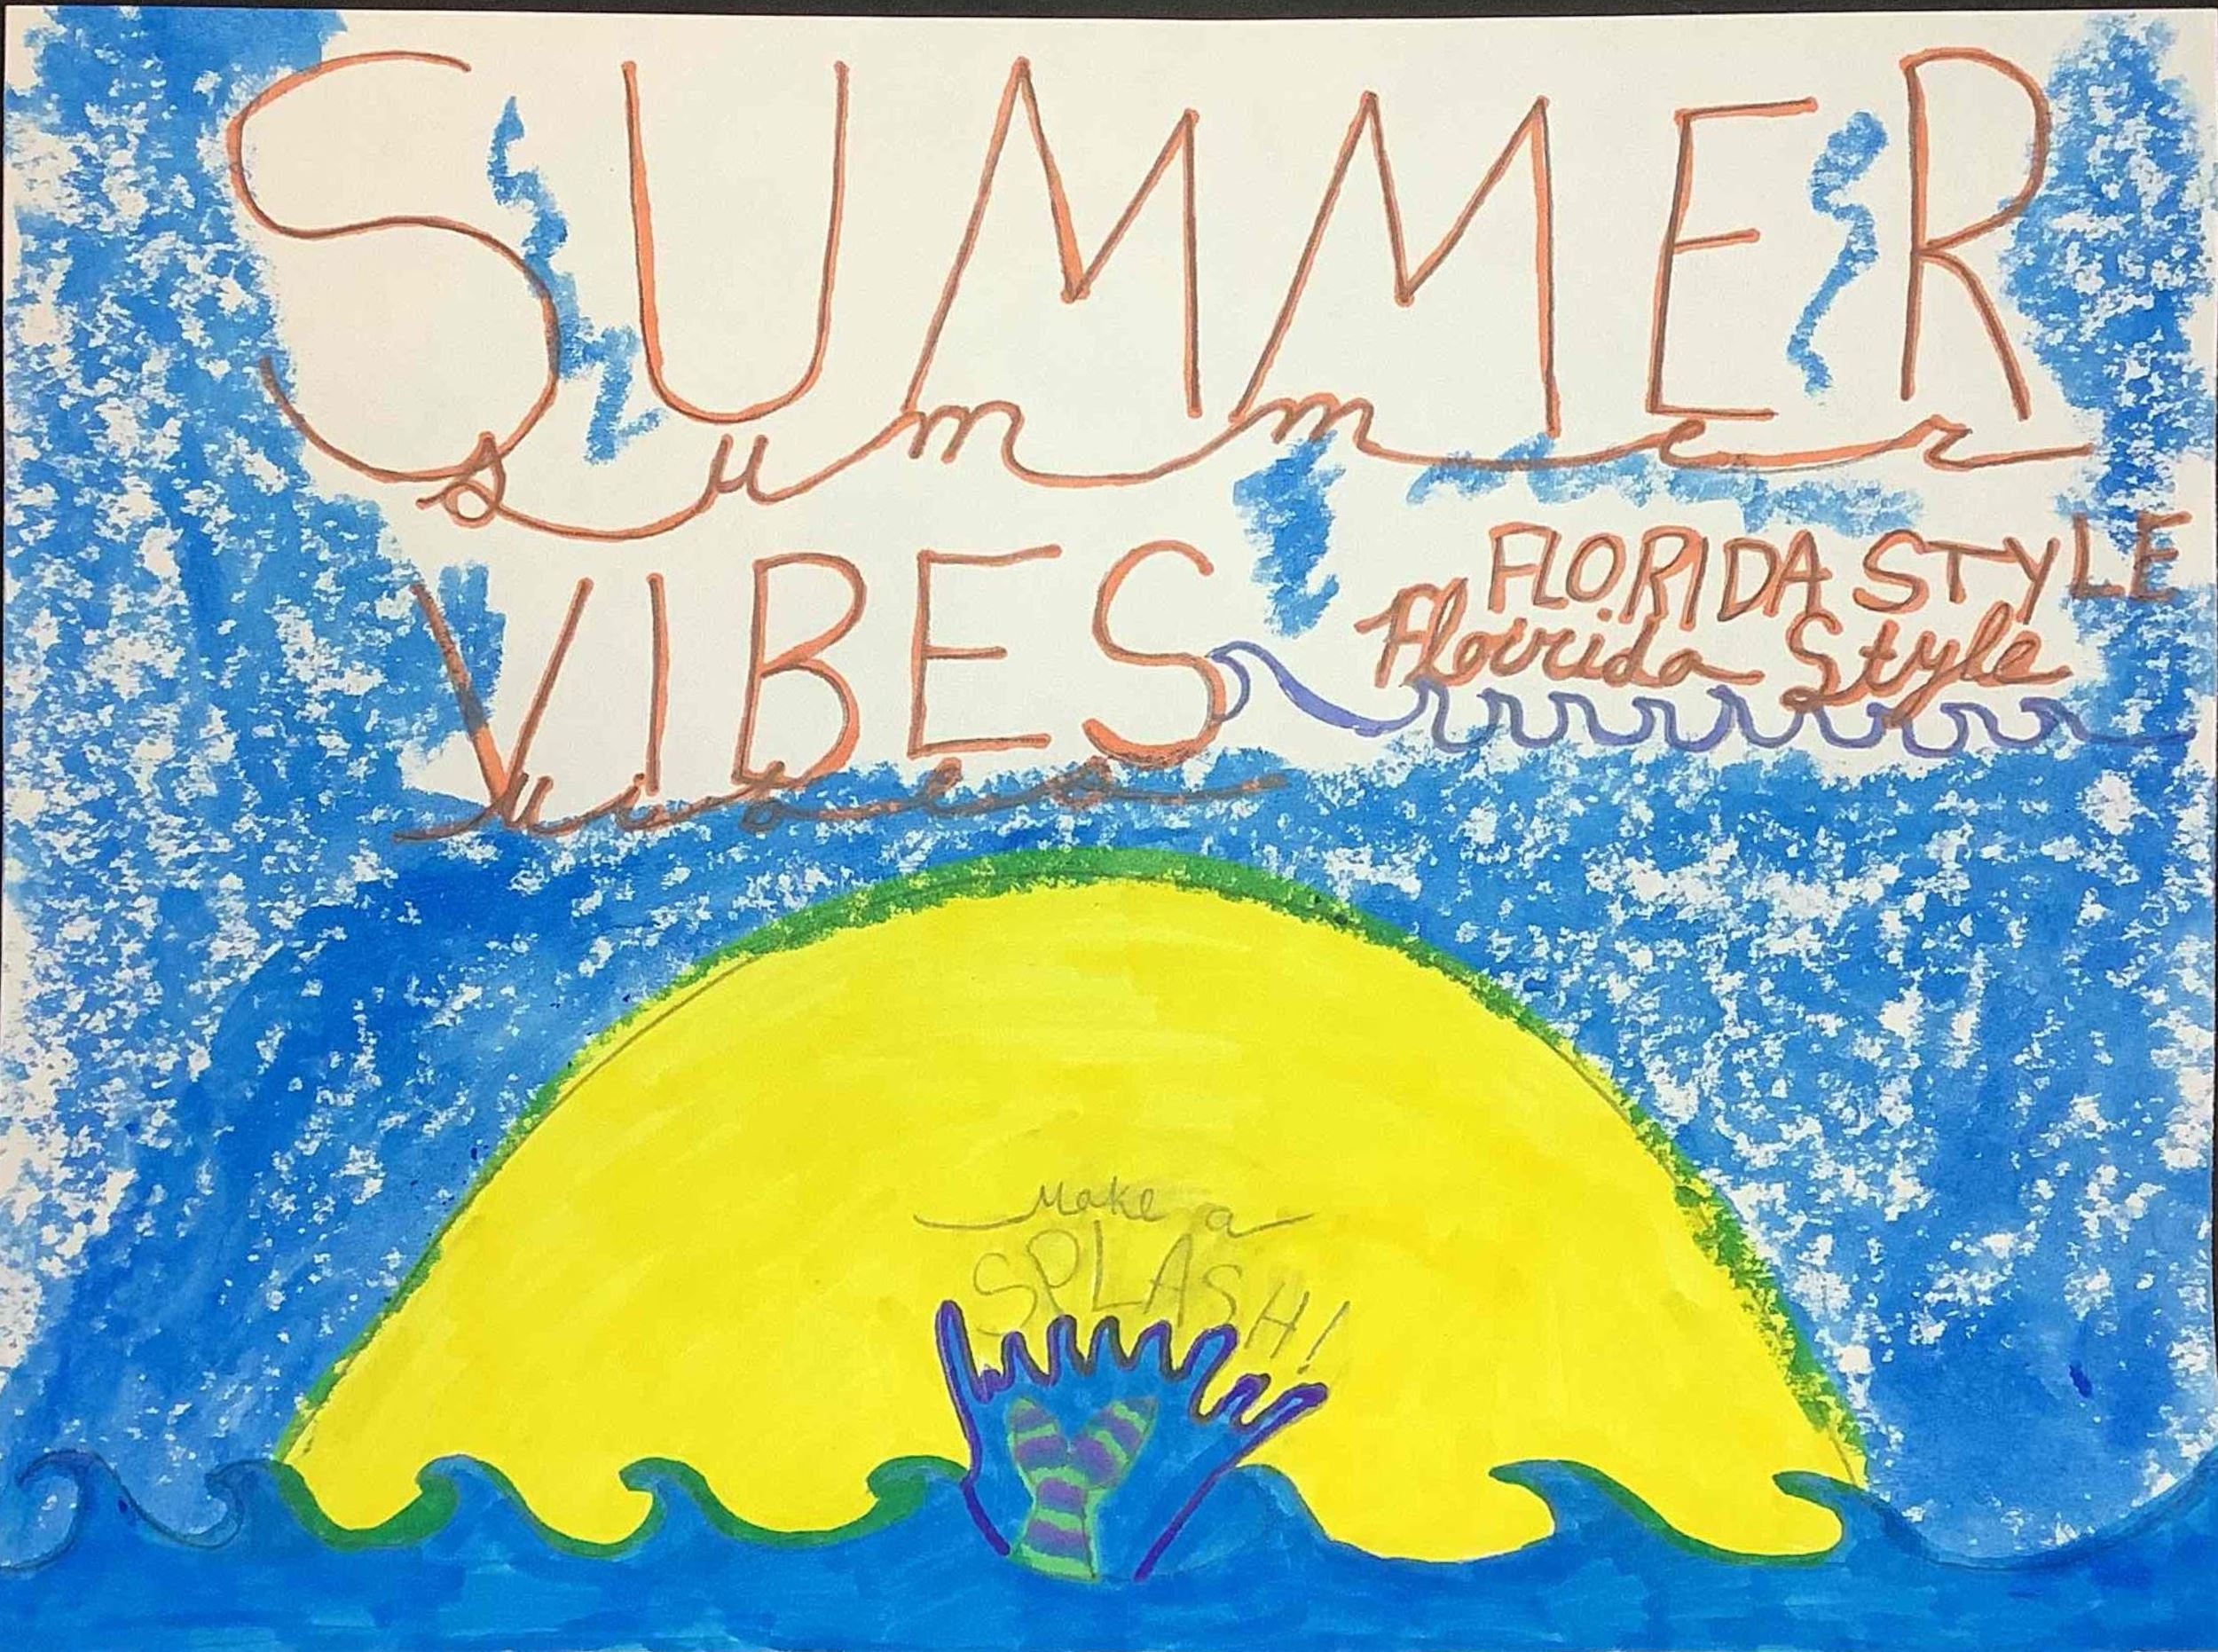 SUMMER
summer
VIBES
vibes
FLORIDA STYLE
Florida Style
Make a
SPLASH!